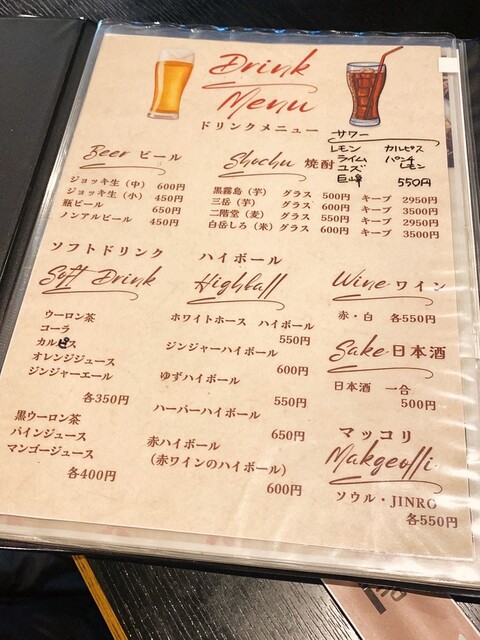 Drink
Menu
ドリンクメニュー
サワー
レモン カルピス
ライム パンチ
ユズ レモン
巨峰 550円
Beer ビール
ジョッキ生（中） 600円
ジョッキ生（小） 450円
瓶ビール 650円
ノンアルビール 450円
Shochu 焼酎
黒霧島（芋） グラス 500円 キープ 2950円
三岳（芋） グラス 600円 キープ 3500円
二階堂（麦） グラス 550円 キープ 2950円
白岳しろ（米） グラス 600円 キープ 3500円
ソフトドリンク
Soft Drink
ウーロン茶
コーラ
カルピス
オレンジジュース
ジンジャーエール
各350円
黒ウーロン茶
パインジュース
マンゴージュース
各400円
ハイボール
Highball
ホワイトホース ハイボール
550円
ジンジャーハイボール
600円
ゆずハイボール
550円
ハーバーハイボール
650円
赤ハイボール
（赤ワインのハイボール）
600円
Wine ワイン
赤・白 各550円
Sake 日本酒
日本酒 一合
500円
マッコリ
Makgeolli
ソウル・JINRO
各550円